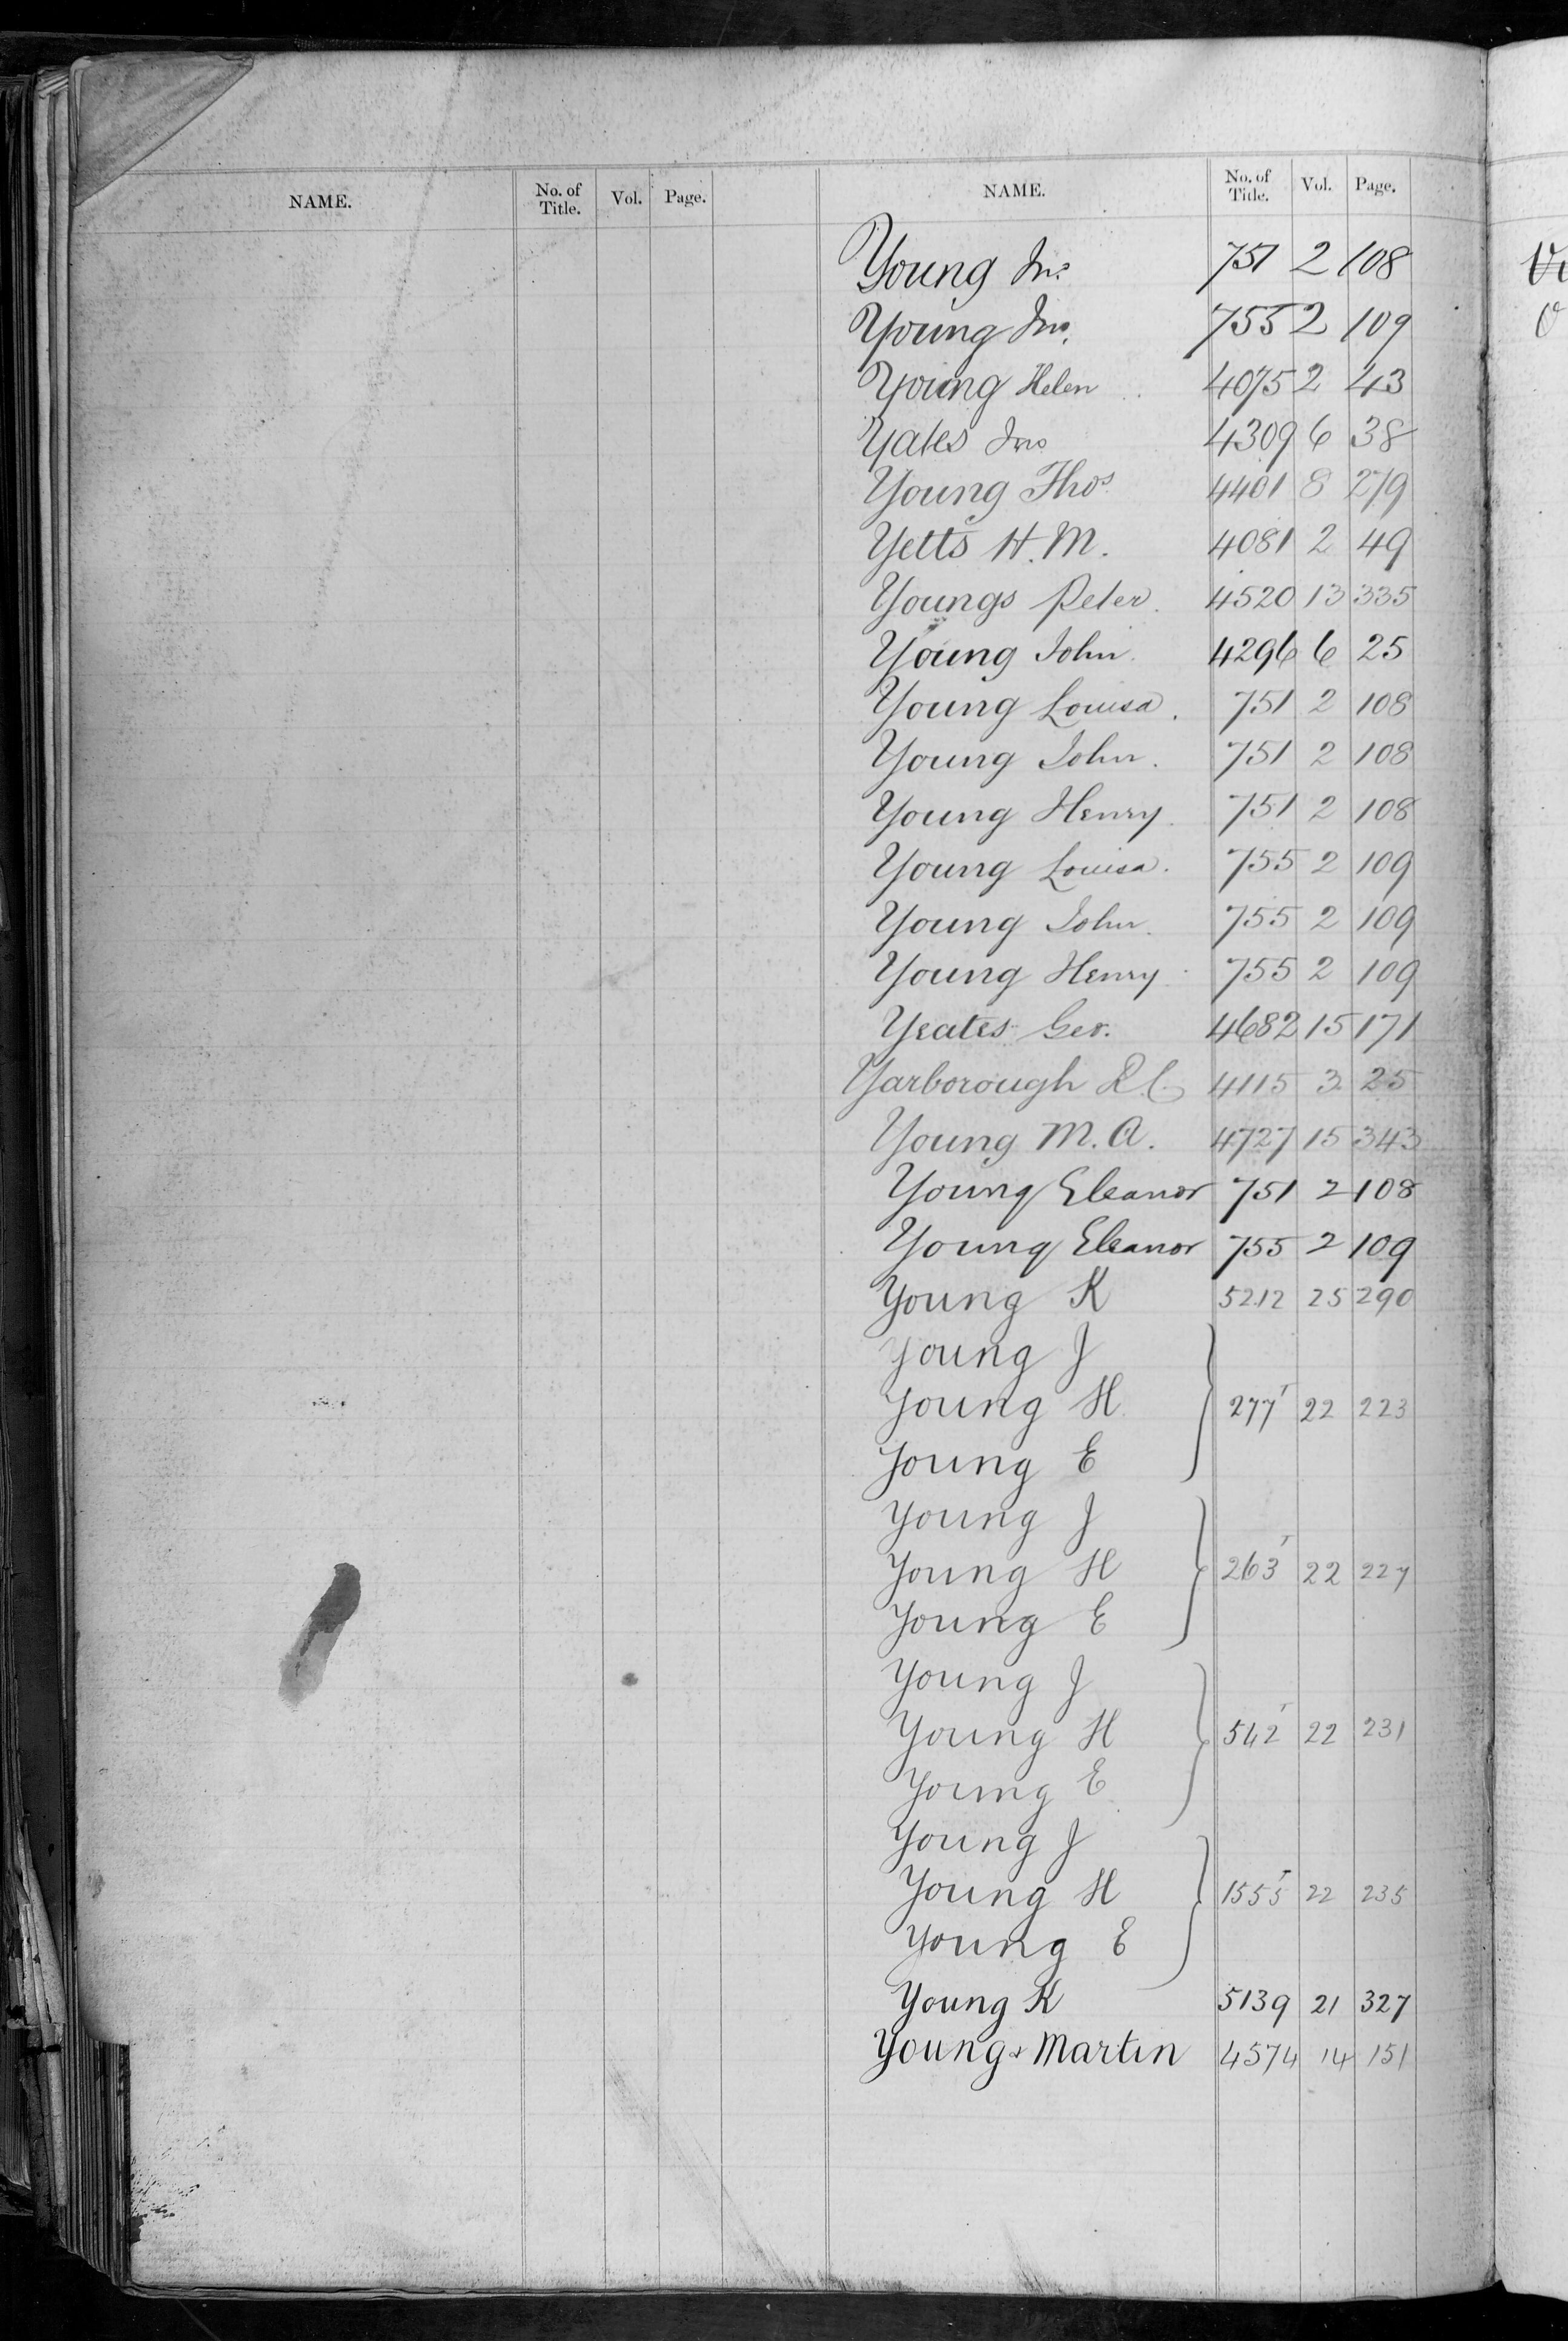 NAME. No. of Title. Vol. Page. NAME. No. of Title. Vol. Page.
Young Jno 751 2 108
Young Jno. 755 2 109
Young Helen 4075 2 43
Yates Jno 4309 6 38
Young Thos 4401 8 279
Yetts H. M. 4081 2 49
Youngs Peter. 4520 13 335
Young John. 4296 6 25
Young Louisa. 751 2 108
Young John. 751 2 108
Young Henry. 751 2 108
Young Louisa. 755 2 109
Young John. 755 2 109
Young Henry. 755 2 109
Yeates Geo. 4682 15 171
Yarborough R.C. 4115 3 25
Young M. A. 4727 15 343
Young Eleanor 751 2 108
Young Eleanor 755 2 109
Young K 5212 25 290
Young J
Young H 277T 22 223
Young E
Young J
Young H 263T 22 227
Young E
Young J
Young H 542T 22 231
Young E
Young J
Young H 1555T 22 235
Young E
Young K 5139 21 327
Young & Martin 4574 14 151